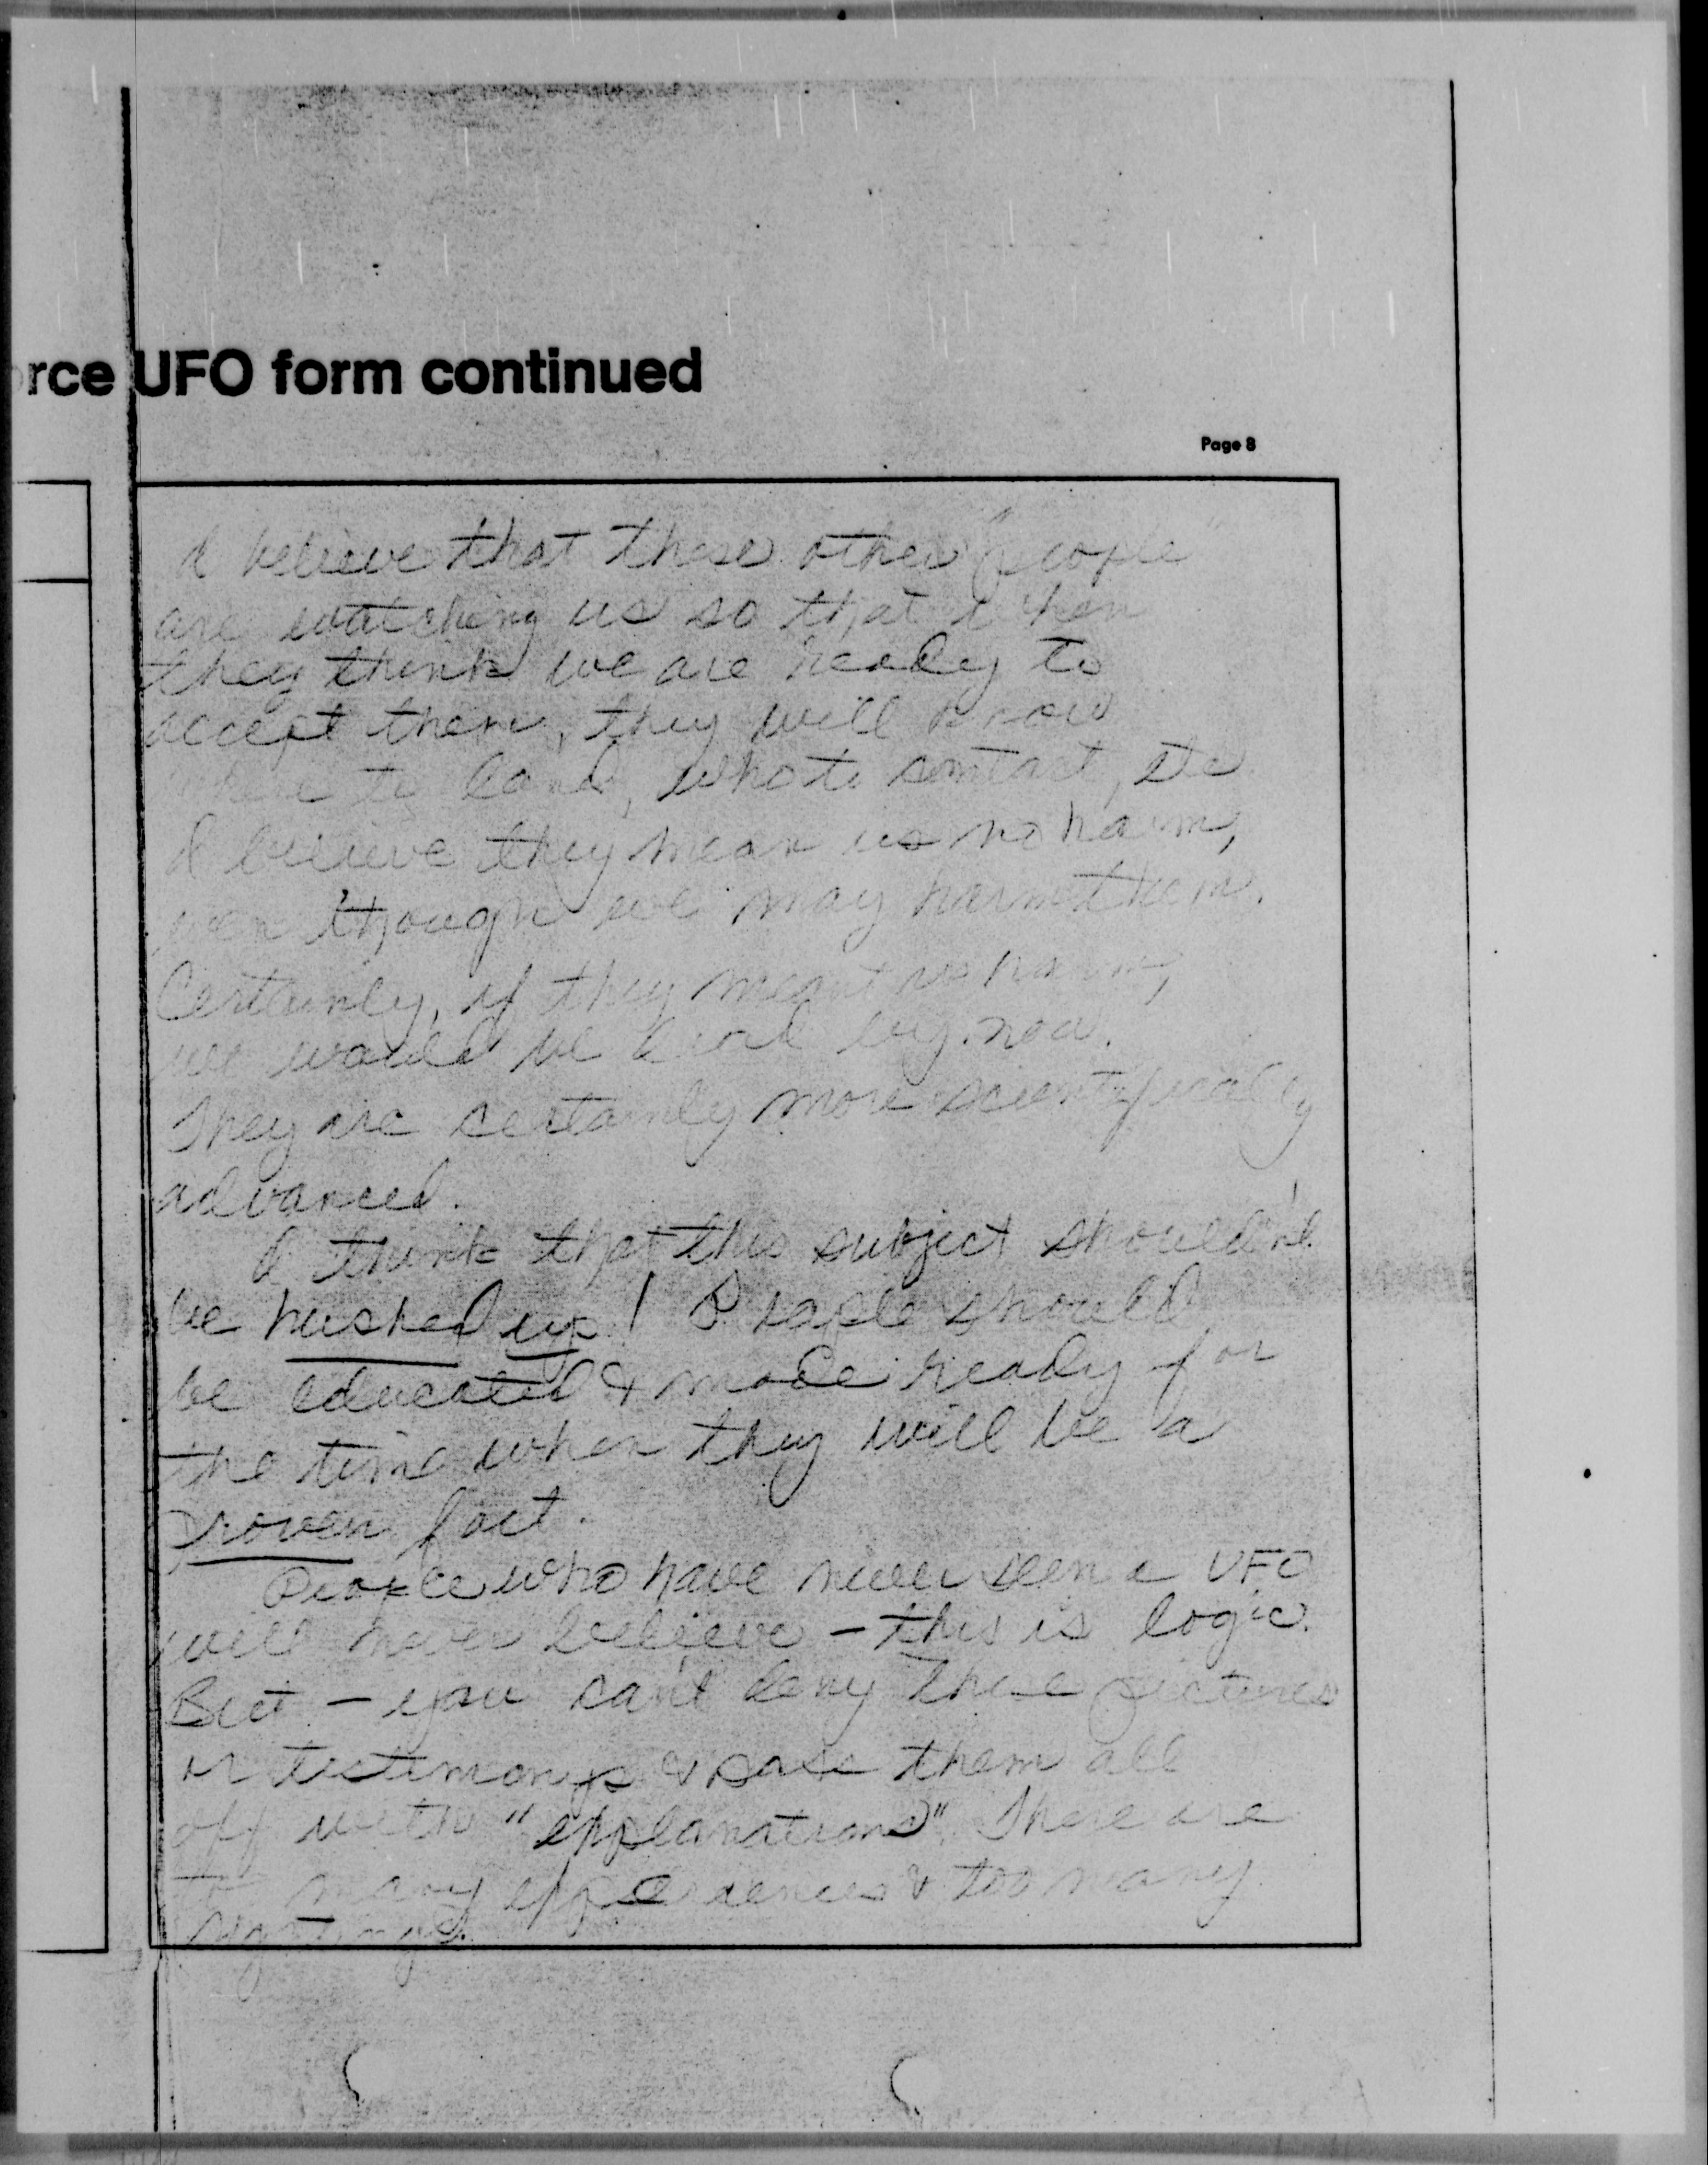 rce UFO form continued
Page 8
I believe that these other "people"
are watching us so that when
they think we are ready to
accept them, they will know
where to land, who to contact, etc
I believe they mean us no harm,
even though we may harm them.
Certainly, if they meant us harm,
we would be dead by now.
They are certainly more scientifically
advanced.
I think that this subject shouldn't
be hushed up! People should
be educated & made ready for
the time when they will be a
proven fact.
People who have never seen a UFO
will never believe - this is logic.
But - you can't deny these pictures
or testimonys & pass them all
off with "explanations". There are
to many experiences & too many
sightings.